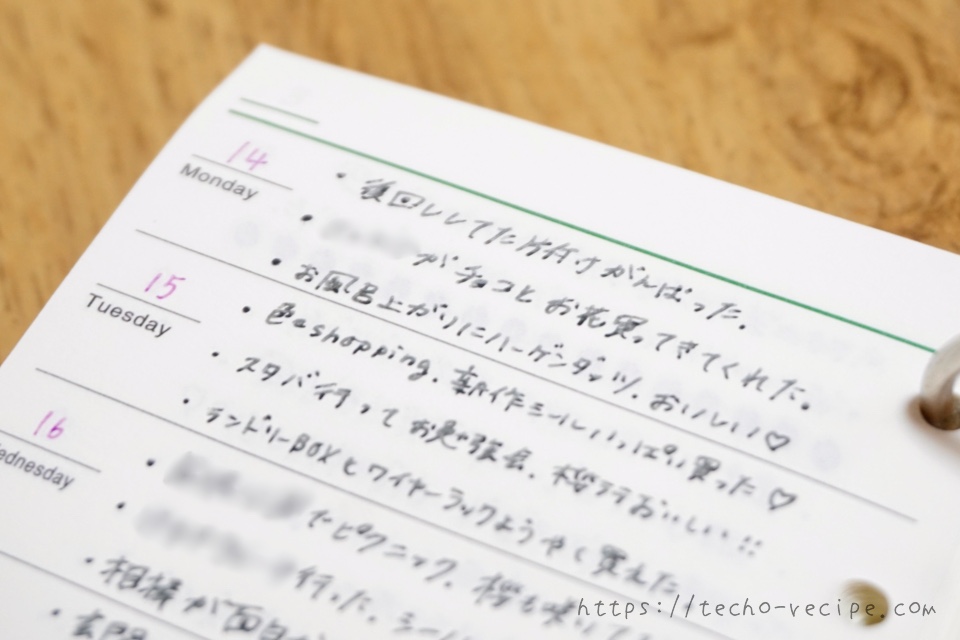 14
Monday
・後回ししてた片付けがんばった。
・ がチョコとお花買ってきてくれた。
・お風呂上がりにハーゲンダッツ。おいしい♡
15
Tuesday
・色々shopping。新作シールいっぱい買った♡
・スタバ行ってお勉強会。桜ラテおいしい!!
・ランドリーBOXとワイヤーラックようやく買えた
16
Wednesday
・ たピクニック。桜も咲いて
・ 行った。シール
・相棒が面白
・玄関
https://techo-recipe.com